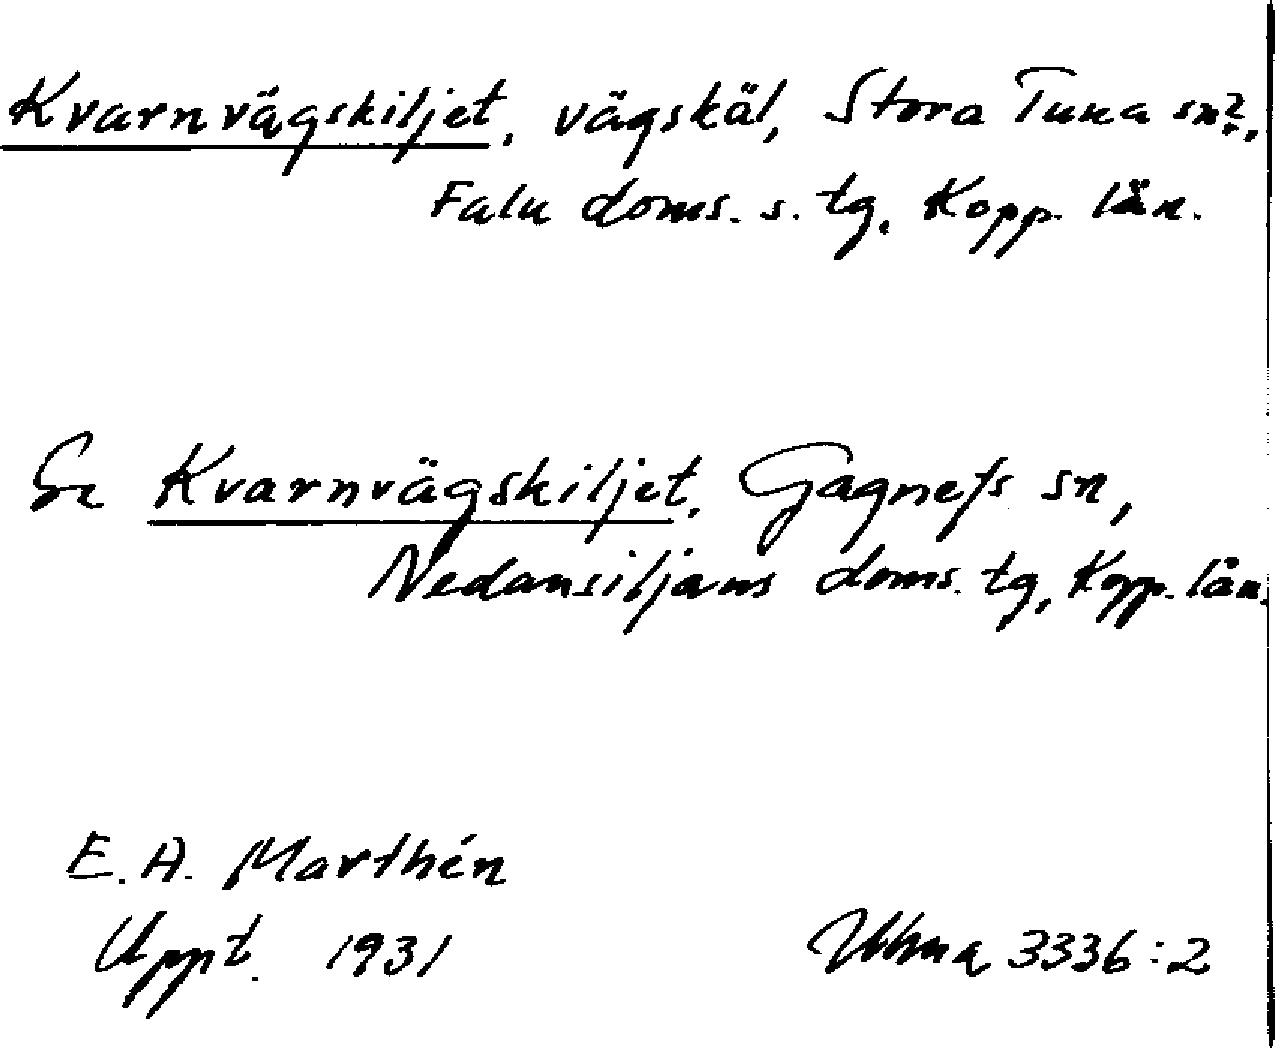 Kvarnvägskiljet, vägskäl, Stora Tuna sn?,
Falu doms. s. tg, Kopp. län.
Se Kvarnvägskiljet, Gagnefs sn,
Nedansiljans doms. tg, Kopp. län.
E. A. Marthén
Uppt. 1931
Ulma 3336:2